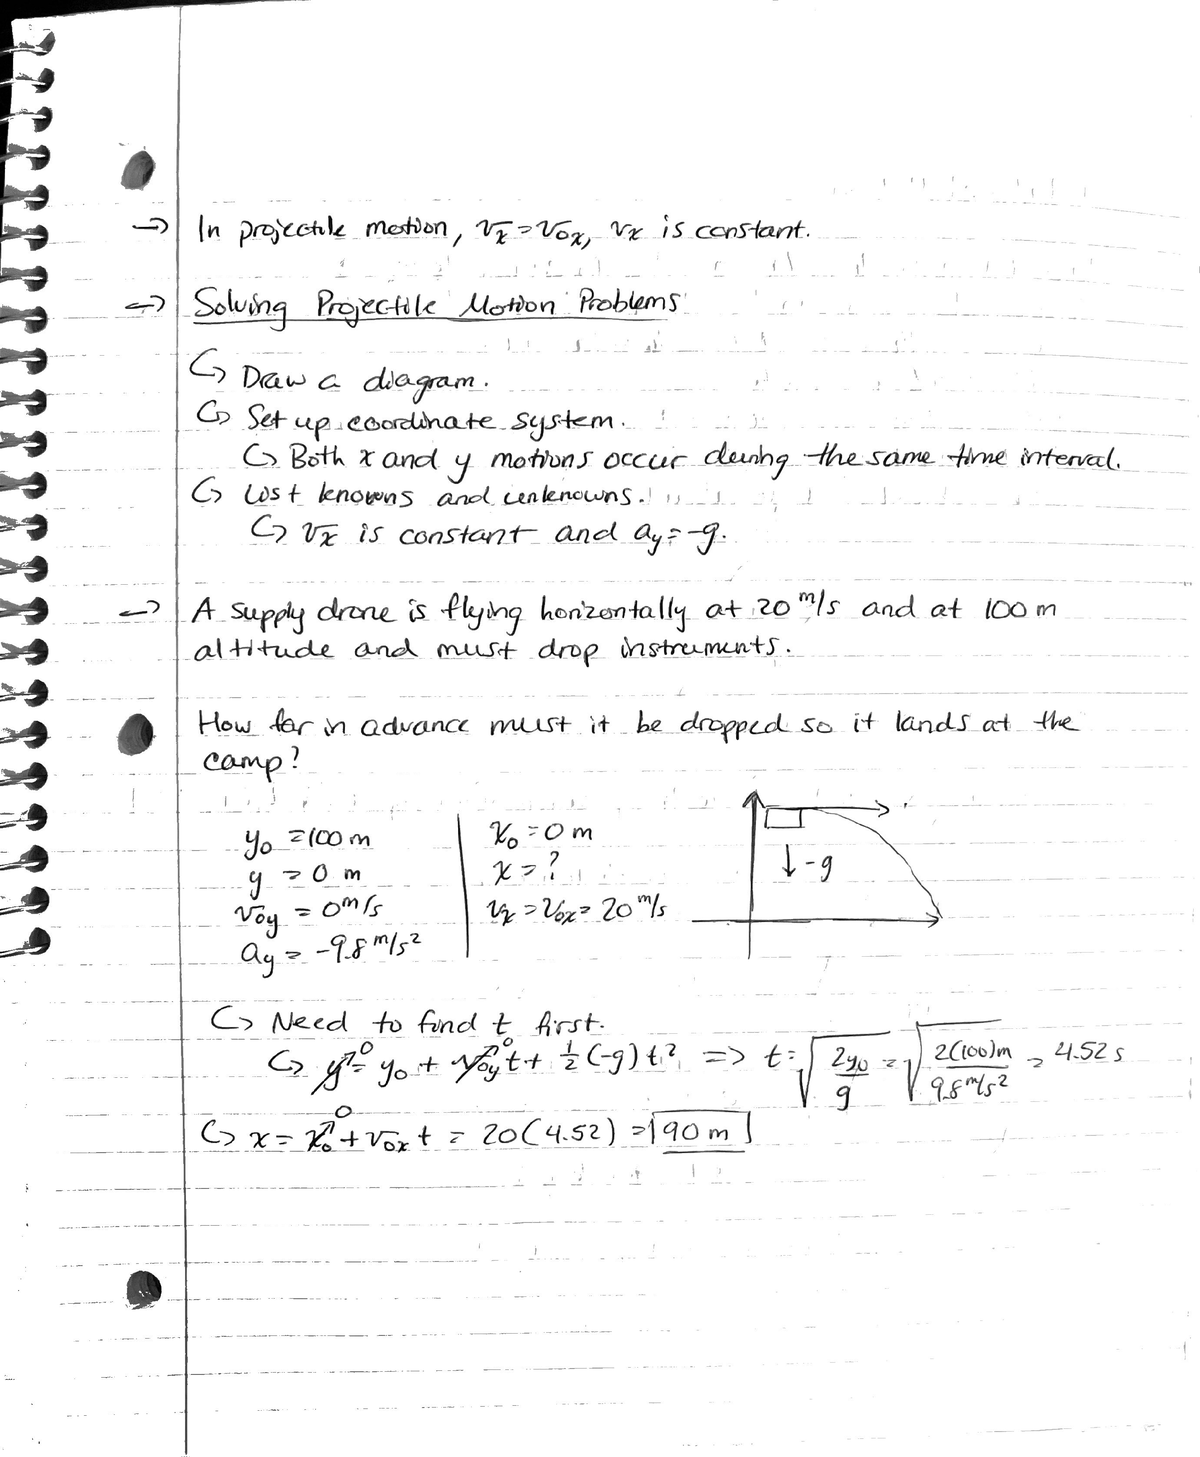 → In projectile motion, vₓ = v₀ₓ, vₓ is constant.
→ Solving Projectile Motion Problems
↪ Draw a diagram.
↪ Set up coordinate system.
↪ Both x and y motions occur during the same time interval.
↪ List knowns and unknowns.
↪ vₓ is constant and a_y = -g.
→ A supply drone is flying horizontally at 20 m/s and at 100 m
altitude and must drop instruments.
How far in advance must it be dropped so it lands at the
camp?
y₀ = 100 m
y = 0 m
v₀y = 0 m/s
a_y = -9.8 m/s²
x₀ = 0 m
x = ?
vₓ = v₀ₓ = 20 m/s
↓ -g
↪ Need to find t first.
↪ y→0 = y₀ + v₀y→0 t + ½(-g)t² => t = √(2y₀/g) = √(2(100)m/9.8 m/s²) = 4.52 s
↪ x = x₀→0 + v₀ₓt = 20(4.52) = 90 m